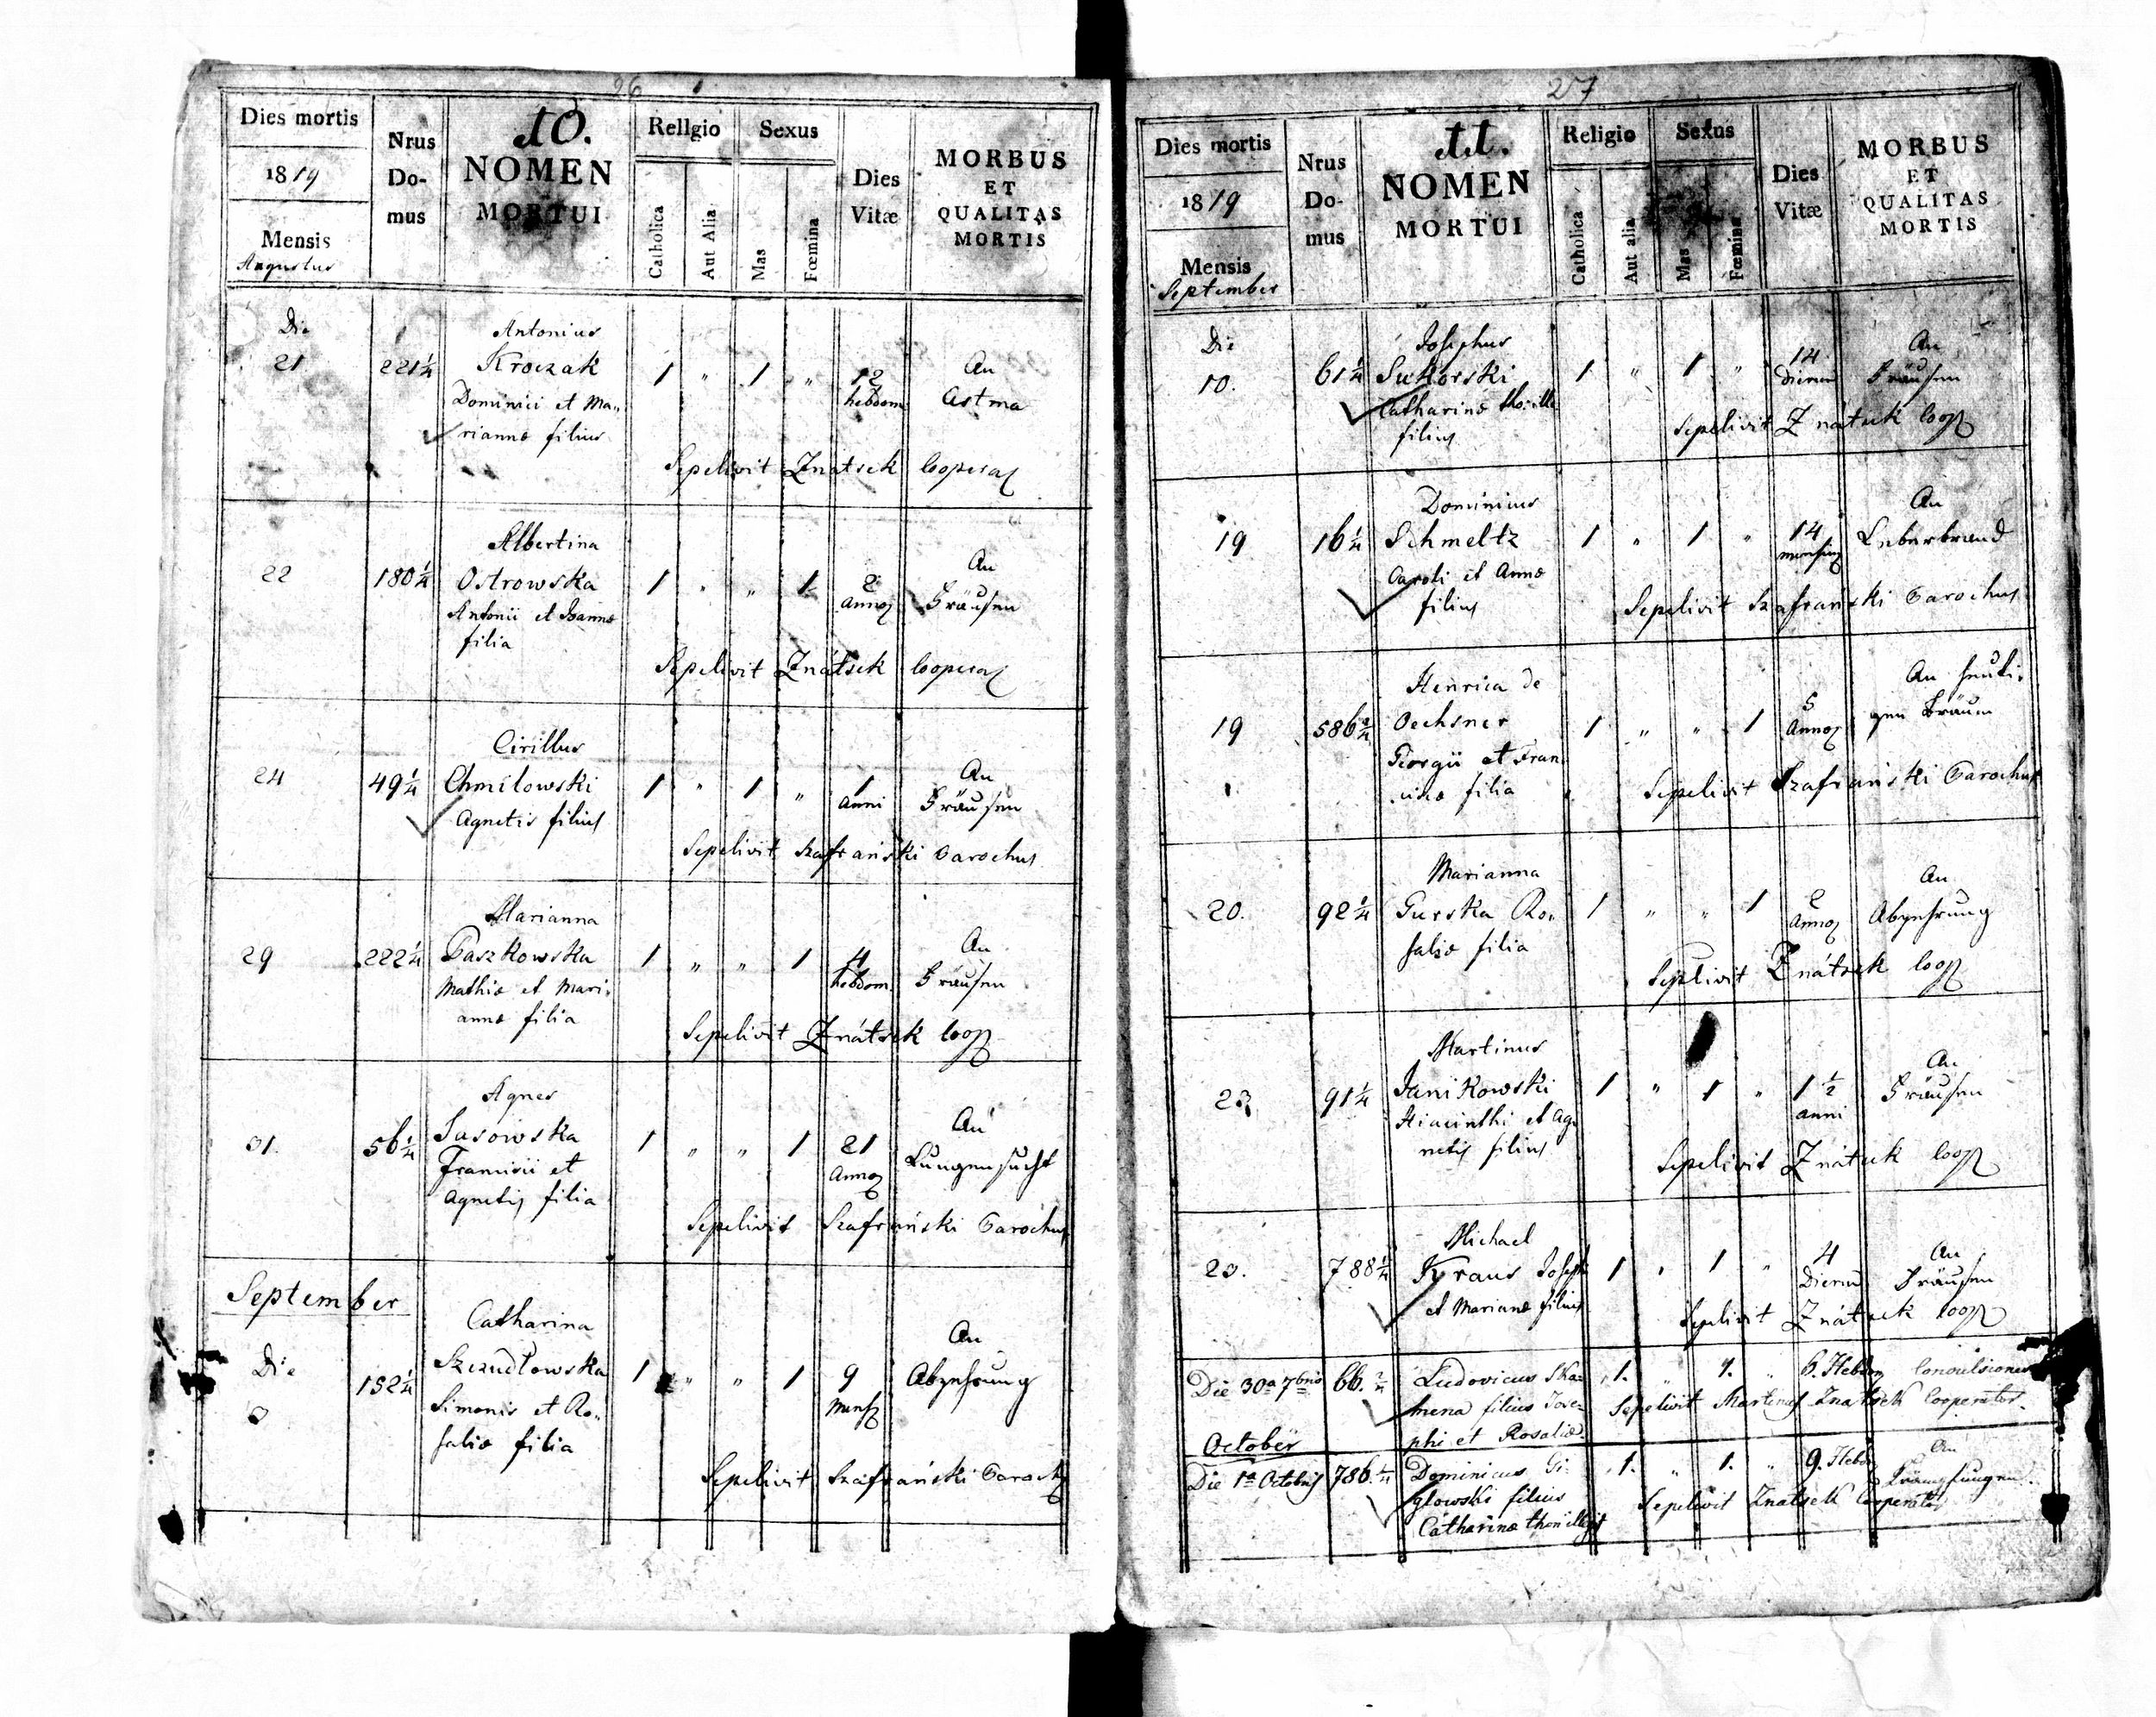 26
Dies mortis
1819
Mensis
Augustus
Nrus
Do-
mus
10.
NOMEN
MORTUI
Religio
Catholica
Aut Alia
Sexus
Mas
Fœmina
Dies
Vitæ
MORBUS
ET
QUALITAS
MORTIS
Die
21
221¼
Antonius
Kroczak
Dominici et Ma„
riannæ filius
1 „ 1 „
12
hebdom
An
Astma
Sepelivit Znatsek Coopera
22
180¼
Albertina
Ostrowska
Antonii et Joannæ
filia
1 „ „ 1
2
Anno
An
Fräusen
Sepelivit Znátsek Coopera
24
49¼
Cirillus
Chmilowski
Agnetis filius
1 „ 1 „
1
anni
An
Fräusen
Sepelivit Szafrański Parochus
29
222¼
Marianna
Paszkowska
Mathiæ et Mari„
annæ filia
1 „ „ 1
4
hebdom.
An
Fräusen
Sepelivit Znátsek Coop
31.
56¼
Agnes
Sasowska
Francisii et
Agnetis filia
1 „ „ 1
21
Anno
An
Lungensucht
Sepelivit Szafrański Parochus
September
Die
3
152¼
Catharina
Szczudłowska
Simonis et Ro„
saliæ filia
1 „ „ 1
9
Mens
An
Abzehrung
Sepelivit Szafrański Paroch
27
Dies mortis
1819
Mensis
September
Nrus
Do-
mus
11.
NOMEN
MORTUI
Religio
Catholica
Aut alia
Sexus
Mas
Fœmina
Dies
Vitæ
MORBUS
ET
QUALITAS
MORTIS
Die
10.
61¼
Josephus
Sikorski
Catharinæ thori ille
filius
1 „ 1 „
14
Dierum
An
Fräusen
Sepelivit Znátsek Coop
19
16¼
Dominius
Schmeltz
Caroli et Annæ
filius
1 „ 1 „
14
mensium
An
Leberbrand
Sepelivit Szafrański Parochus
19
586¾
Henrica de
Oechsner
Georgii et Fran
ciscæ filia
1 „ „ 1
5
Anno
An
Sepelivit Szafrański Parochus
20.
92¼
Marianna
Gurska Ro„
saliæ filia
1 „ „ 1
2
Anno
An
Abzehrung
Seplivit Znátsek Coop
23
91¼
Martinus
Janikowski
Hiacinthi et Ag„
netis filius
1 „ 1 „
1½
anni
An
Fräusen
Sepelivit Znátsek Coop
23.
788¼
Michael
Kraus Joseph
et Mariannæ filius
1 „ 1 „
4
Dierum
An
Fräusen
Sepelivit Znátsek Coop
Die 30a 7bris
66.
Ludovicus Ska„
mena filius Jose„
phi et Rosaliæ
1. „ 1. „
6. Hebdom
Convulsiones
Sepelivit Martinus Znatsek Cooperator.
October
Die 1a Octobris
786.¼
Dominicus Gi„
glowski filius
Catharinæ thori illegit
1. „ 1. „
9. Hebd
An
Sepelivit Znatsek Cooperator